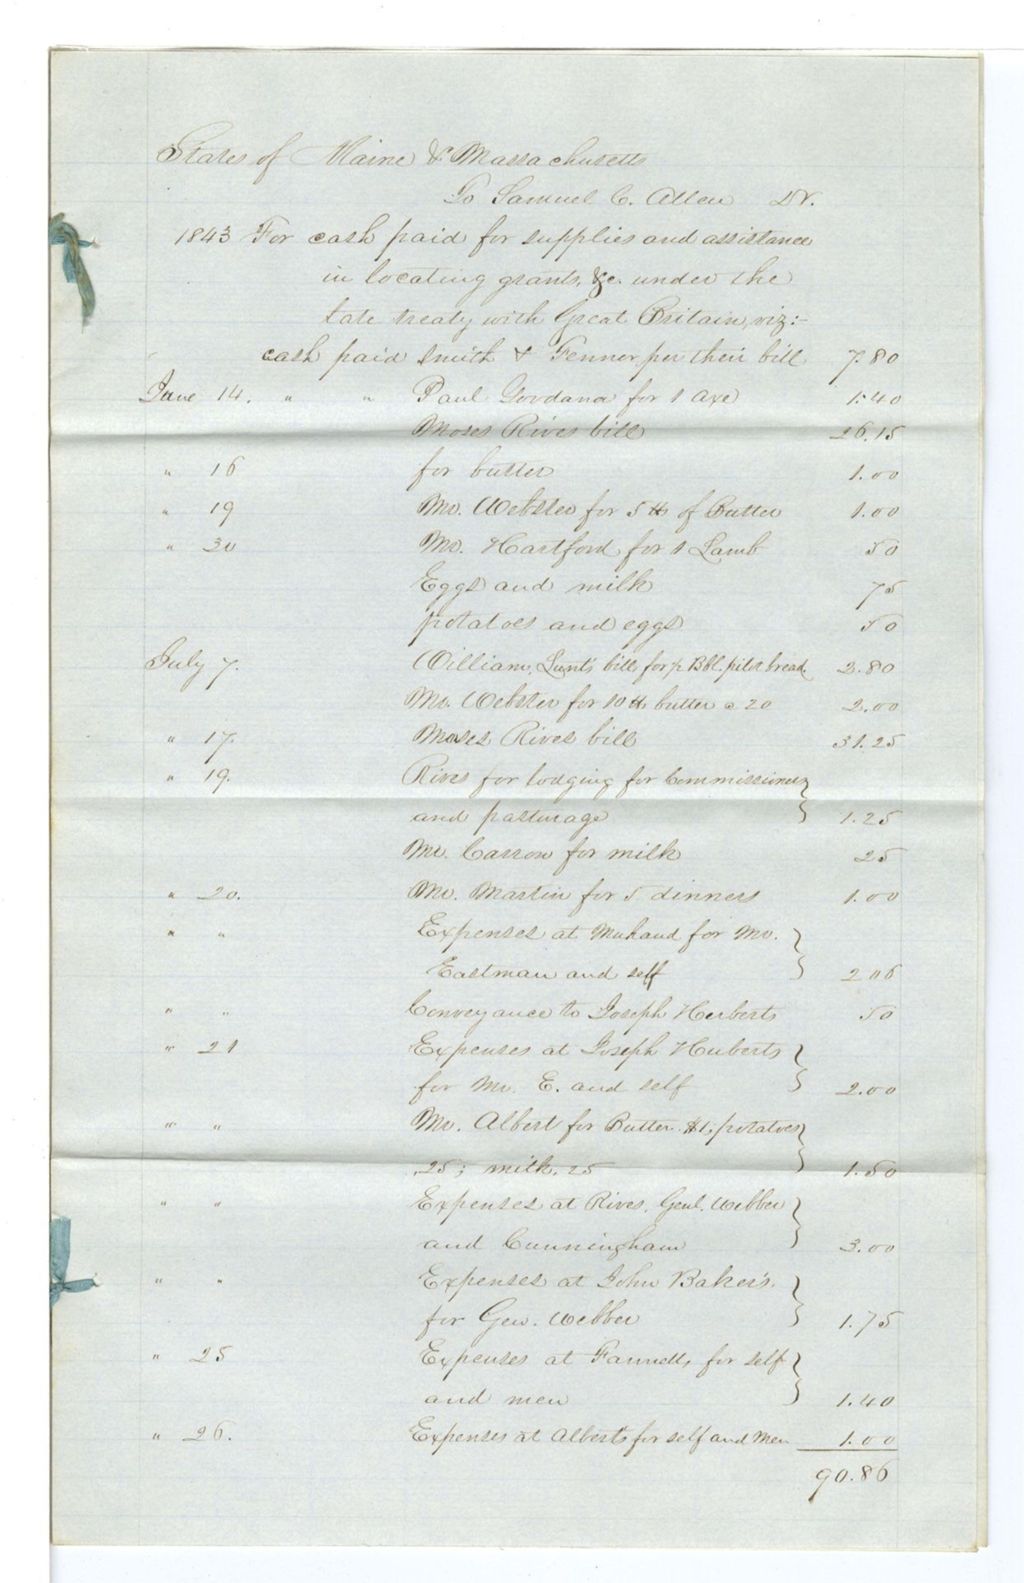 States of Maine & Massachusetts
To Samuel C. Allen Dr.
1843 For cash paid for supplies and assistance
in locating grants, &c. under the
late treaty with Great Britain, viz:-
cash paid Smith & Fenner per their bill 7.80
June 14. " " Paul for 1 axe 1.40
Moses Rives bill 26.15
" 16 for butter 1.00
" 19 Mr. Webster for 5 lb of Butter 1.00
" 30 Mr. Hartford for 1 Lamb 50
Eggs and milk 75
potatoes and eggs 50
July 7. William Lunt's bill for Bbl. pilot bread 3.80
Mr. Webster for 10 lb butter @ 20 2.00
" 17. Moses Rives bill 31.25
" 19. Rives for lodging for Commissioners
and pasturage 1.25
Mr. for milk 25
" 20. Mr. Martin for 5 dinners 1.00
" " Expenses at for Mr.
Eastman and self 2 06
" " Conveyance to Joseph Herberts 50
" 21 Expenses at Joseph Huberts
for Mr. E. and self 2.00
" " Mr. Albert for Butter $1; potatoes
.25; milk .25 1.50
" " Expenses at Rives, Genl. Webber
and Cunningham 3.00
" " Expenses at John Baker's
for Gen. Webber 1.75
" 25 Expenses at for self
and men 1.40
" 26. Expenses at Alberts for self and Men 1.00
90.86